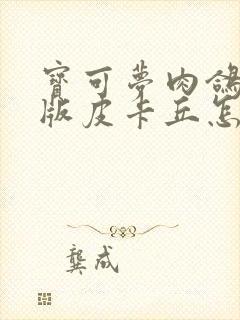 寶可夢肉鴿
版皮卡丘怎
龔成